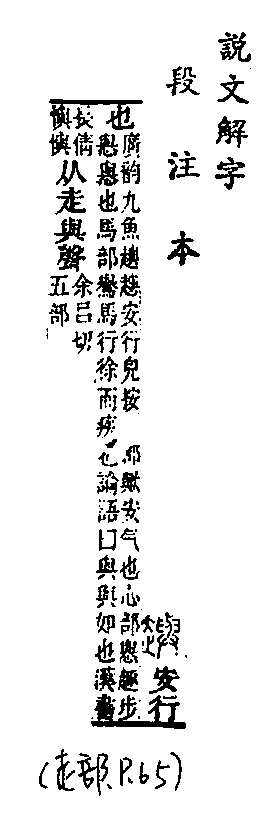 說文解字
段注本
安行
也
廣韵九魚𧾚𧾚安行皃按 部歟安气也心部㦛趣步
㦛㦛也馬部馬行徐而疾也論語曰與與如也漢書
長倩
㦛㦛
从走與聲
余呂切
五部
(走部.P.65)